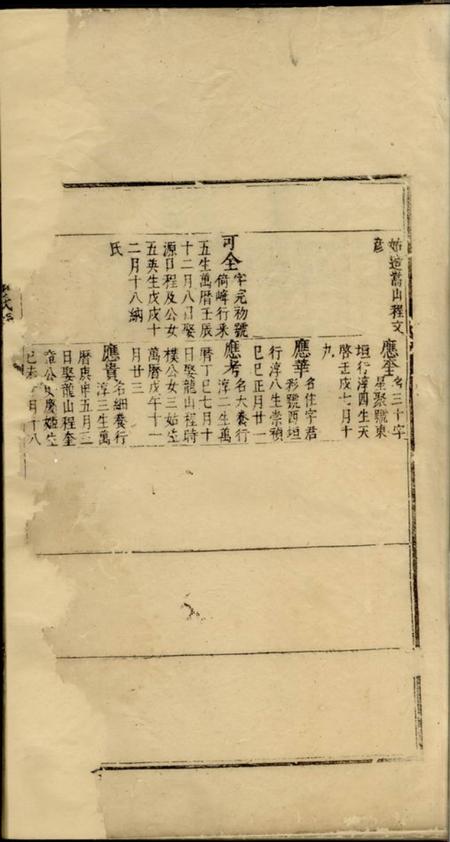 始遷嵩山程文
彦
可全字元初號
倚峰行釆
五生萬曆壬辰
十二月八日娶
源口程及公女
五英生戊戌十
二月十八納
氏
應奎名三十字
星聚號東
垣行淳四生天
啓壬戌七月十
九
應華名佳字君
彩號西垣
行淳八生崇禎
己巳正月廿一
應考名大養行
淳二生萬
曆丁巳七月十
日娶龍山程時
樸公女三姑生
萬曆戊午十一
月廿三
應貴名細養行
淳三生萬
曆庚申五月三
日娶龍山程奎
公女慶姑生
己未 月十八